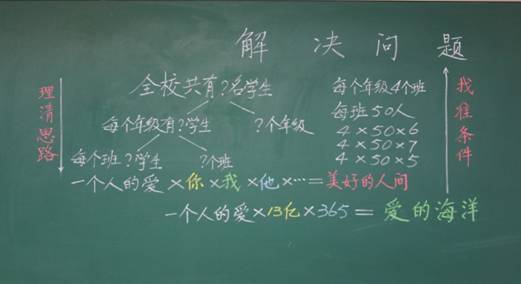 解决问题
理清思路
全校共有?名学生
每个年级有?学生 ?个年级
每个班?学生 ?个班
每个年级4个班
每班50人
4×50×6
4×50×7
4×50×5
找准条件
一个人的爱×你×我×他×…=美好的人间
一个人的爱×13亿×365=爱的海洋